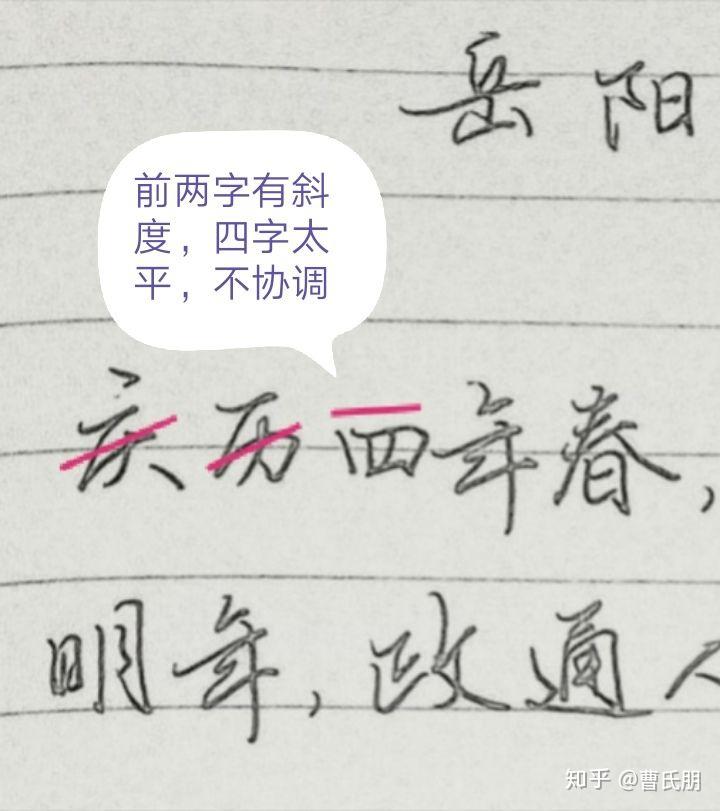 岳阳
前两字有斜
度，四字太
平，不协调
庆历四年春，
明年，政通人
知乎 @曹氏朋